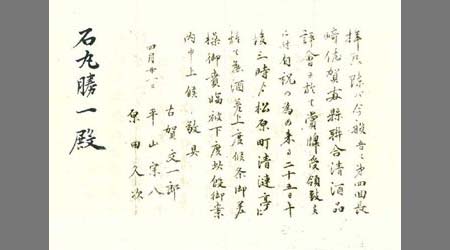 拝啓 陳ハ今般当市第四回長
崎佐賀両縣聯合清酒品
評會ニ於テ賞牌受領致候
ニ付祝の為め来ル二十五日午
後三時ゟ松原町清漣亭に
於て粗酒差上度候条御差
操御貴臨被下度此段御案
内申上候 敬具
四月廿
古賀文一郎
平山宗八
原田久次
石丸勝一殿